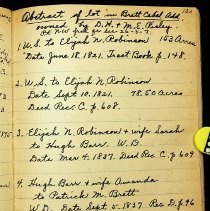 Abstract of lot in Brett Cabel Add.
owned by D. H. & M. E. Raley.
1 U. S. to Elijah N. Robinson 153 Acres
Date June 18, 1821, Tract Book p. 148.
2. U. S. to Elijah N. Robinson
Date Sept. 10, 1821. 78.50 Acres
Deed Rec C. p. 608.
3. Elijah N. Robinson & wife Sarah
to Hugh Barr. W. D.
Date Mar 4, 1837. Deed Rec C. p 609
4. Hugh Barr & wife Amanda
to Patrick M. Brett
W. D. Date Sept 5, 1837. Rec D. p